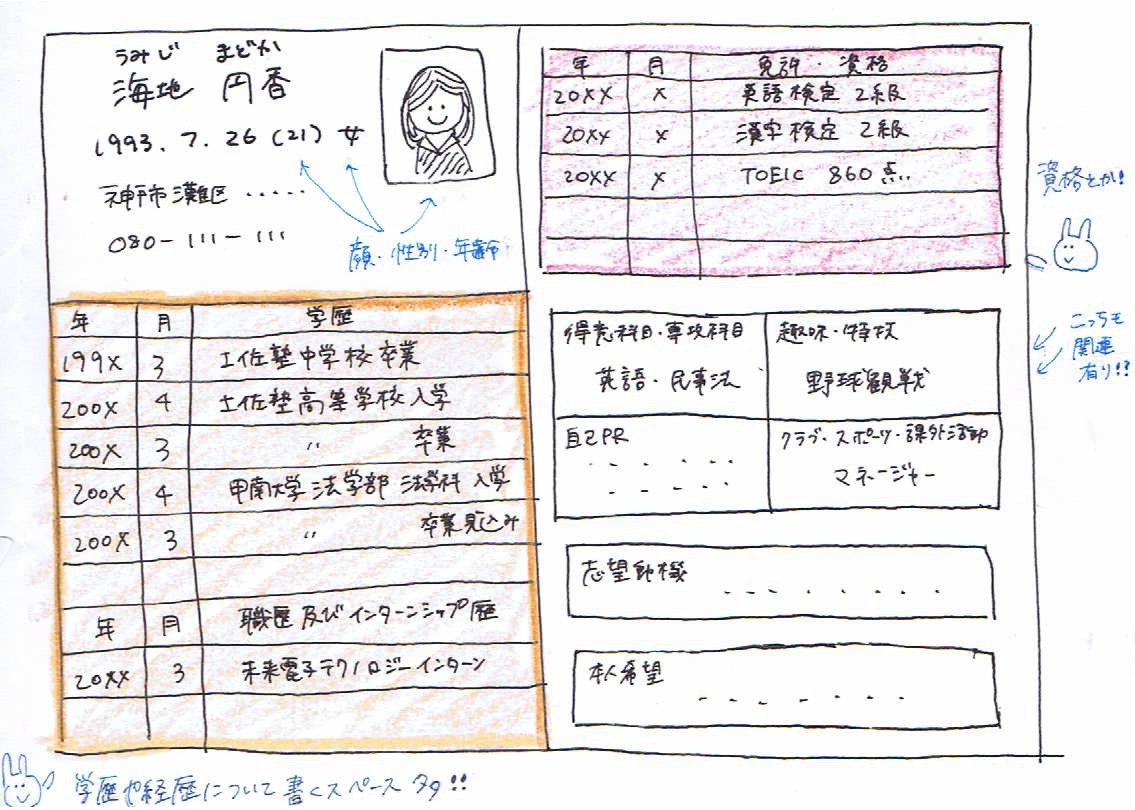 うみじ まどか
海地 円香
1993.7.26(21) 女
神戸市灘区 ・・・・・
080-111-111
顔・性別・年齢
年 月 学歴
199X 3 土佐塾中学校卒業
200X 4 土佐塾高等学校入学
200X 3 〃 卒業
200X 4 甲南大学法学部 法学科 入学
200X 3 〃 卒業見込み
年 月 職歴及びインターンシップ歴
20XX 3 未来電子テクノロジーインターン
学歴や経歴について書くスペース タタ!!
年 月 免許・資格
20XX X 英語検定 2級
20XX X 漢字検定 2級
20XX X TOEIC 860点..
資格とか!
得意科目・専攻科目
英語・民事法
趣味・特技
野球観戦
こっちも
関連
有り!?
自己PR
クラブ・スポーツ・課外活動
マネージャー
志望動機
本人希望